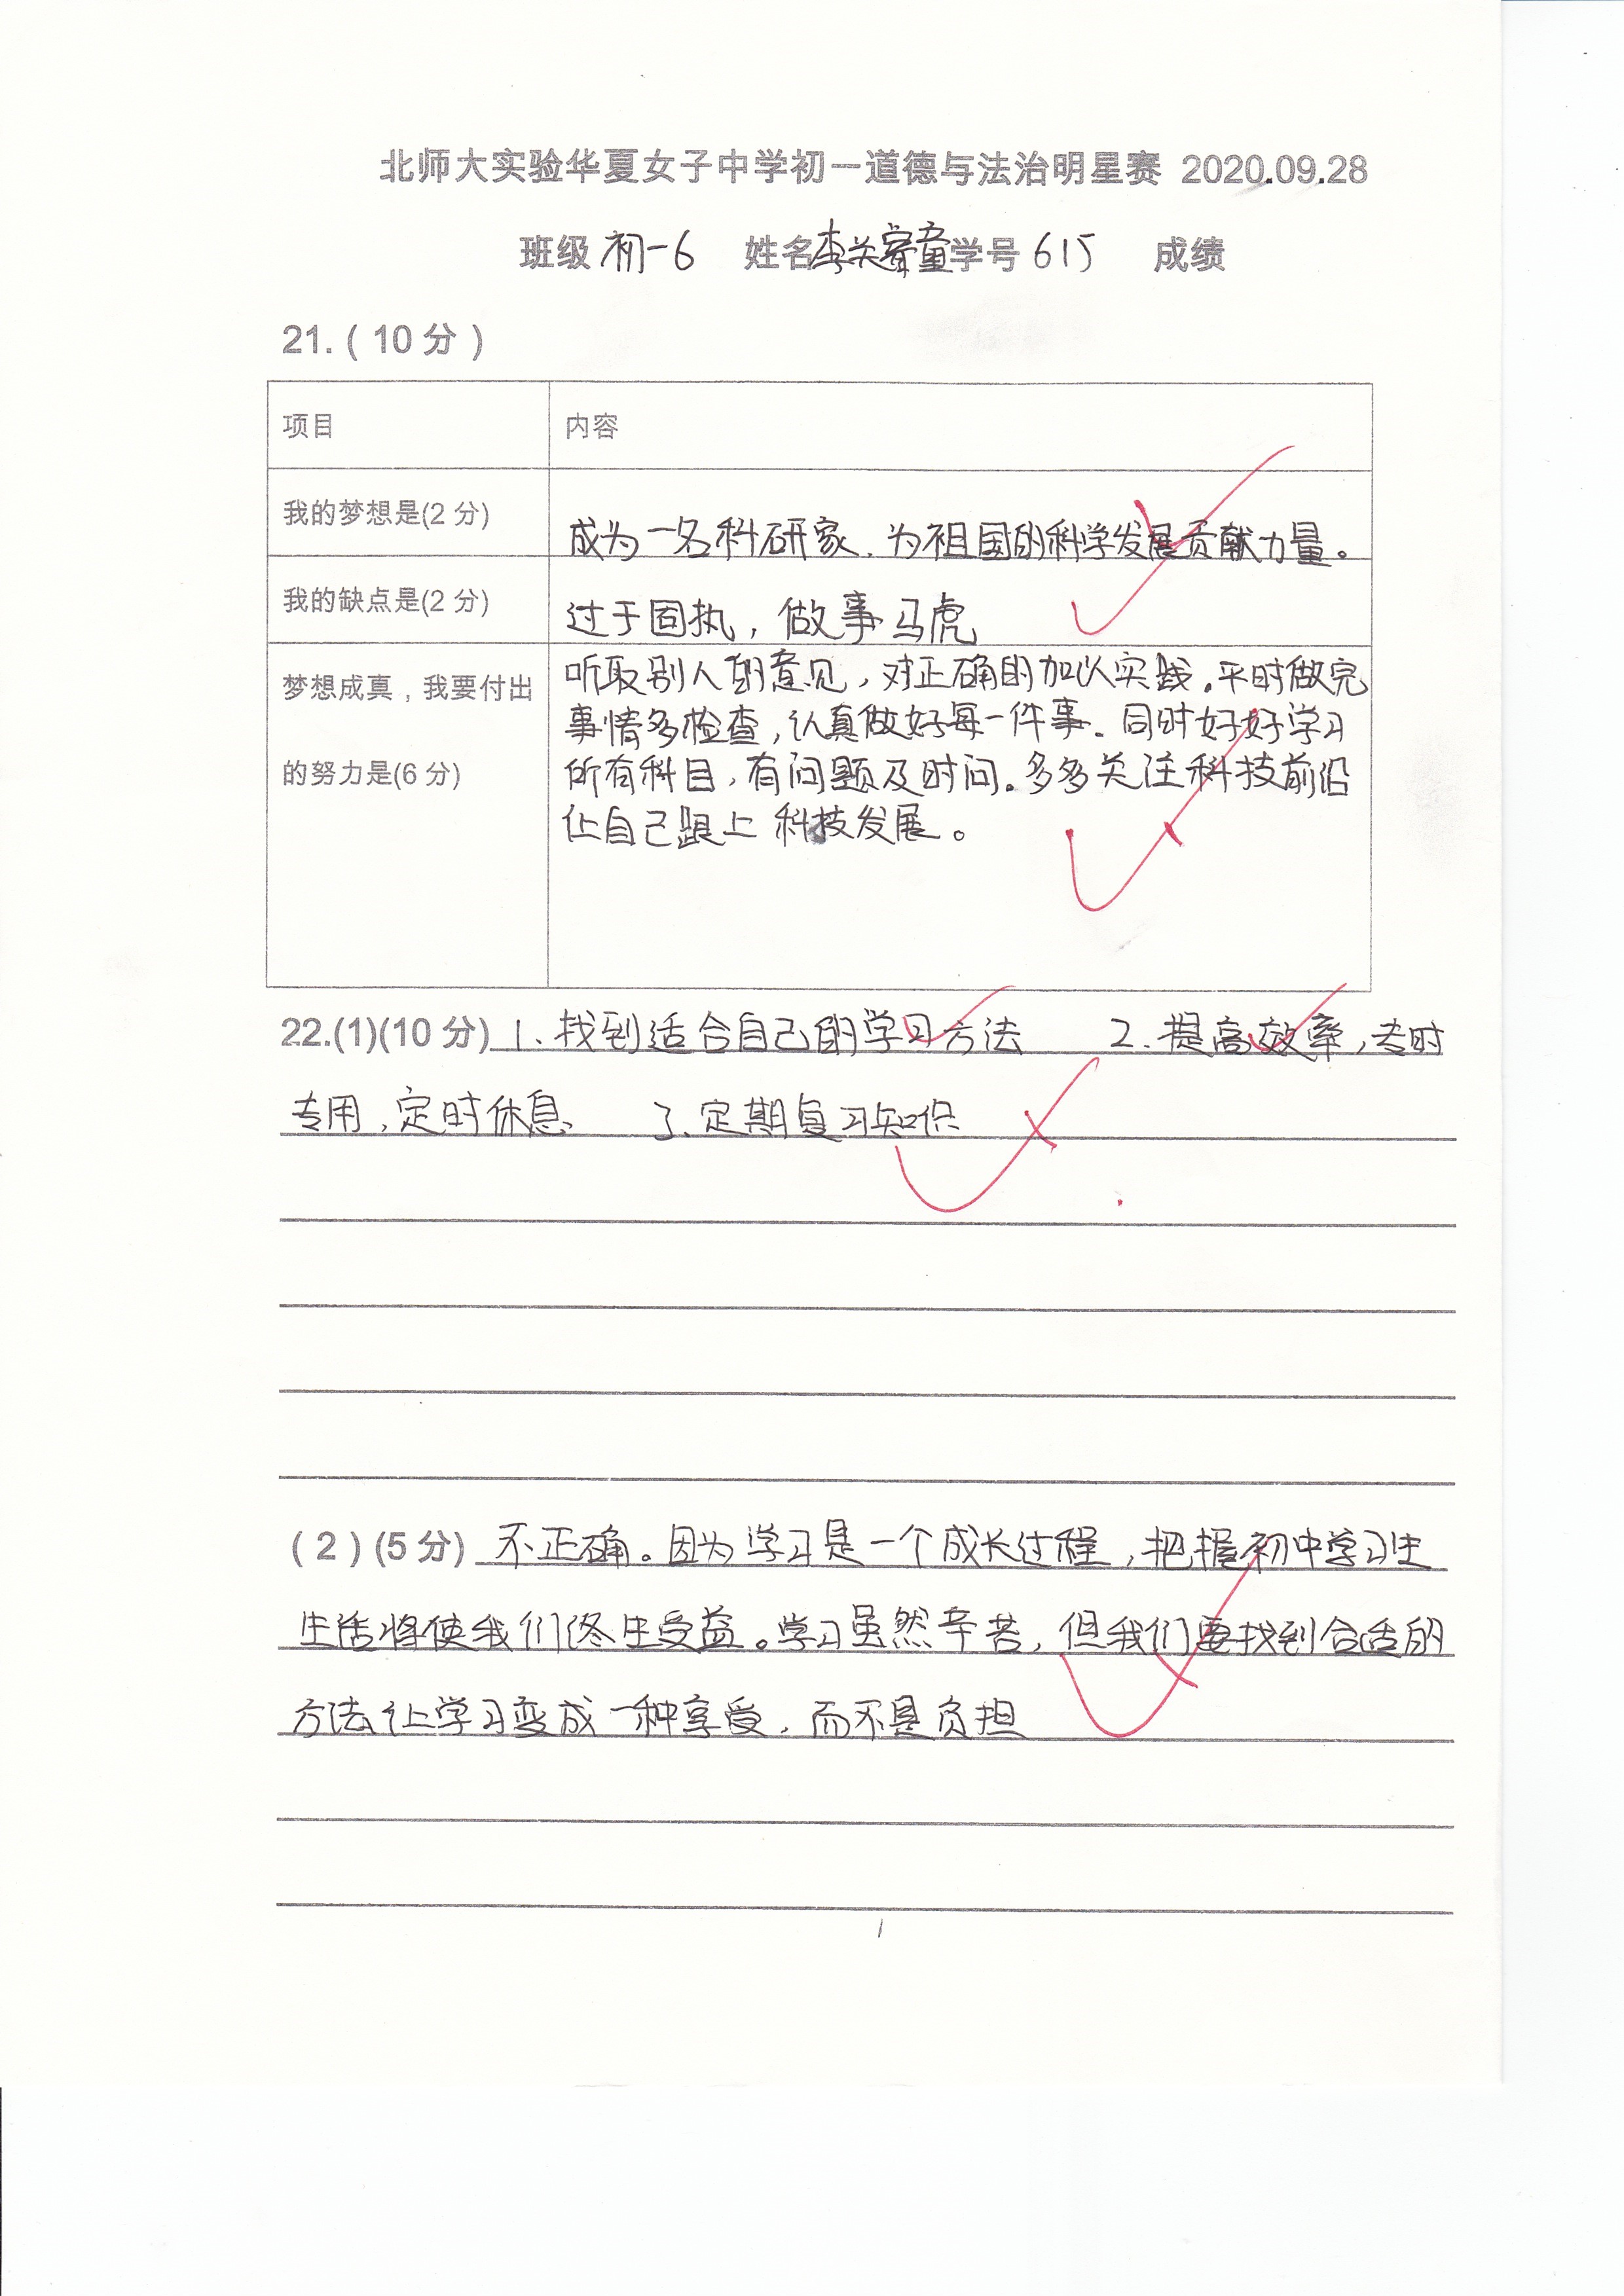 北师大实验华夏女子中学初一道德与法治明星赛 2020.09.28
班级 初一6 姓名 李关睿童 学号 615 成绩
21.（10分）
项目 内容
我的梦想是(2分) 成为一名科研家、为祖国的科学发展贡献力量。
我的缺点是(2分) 过于固执，做事马虎
听取别人的意见，对正确的加以实践。平时做完
梦想成真，我要付出
事情多检查，认真做好每一件事。同时好好学习
的努力是(6分) 所有科目，有问题及时问。多多关注科技前沿
让自己跟上科技发展。
22.(1)(10分) 1、找到适合自己的学习方法 2、提高效率，专时
专用，定时休息、 3、定期复习知识
（2）(5分) 不正确。因为学习是一个成长过程，把握初中学习生
生活将使我们终生受益。学习虽然辛苦，但我们要找到合适的
方法让学习变成一种享受，而不是负担